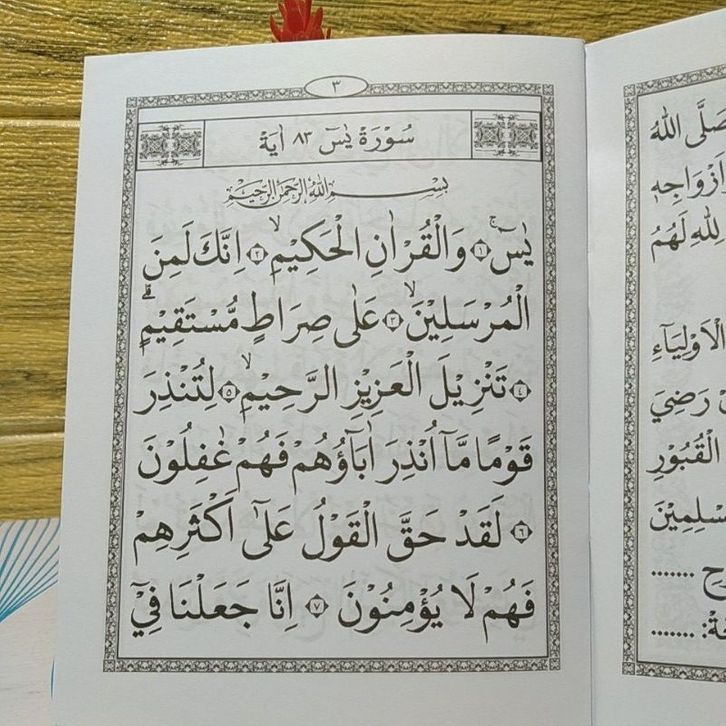 ٣
سُوْرَةُ يٰسٓ ٨٣ اٰيَة
بِسْمِ اللهِ الرَّحْمٰنِ الرَّحِيْمِ
يٰسٓ ۚ ﴿١﴾ وَالْقُرْاٰنِ الْحَكِيْمِۙ ﴿٢﴾ اِنَّكَ لَمِنَ
الْمُرْسَلِيْنَۙ ﴿٣﴾ عَلٰى صِرَاطٍ مُّسْتَقِيْمٍۗ
﴿٤﴾ تَنْزِيْلَ الْعَزِيْزِ الرَّحِيْمِۙ ﴿٥﴾ لِتُنْذِرَ
قَوْمًا مَّآ اُنْذِرَ اٰبَاۤؤُهُمْ فَهُمْ غٰفِلُوْنَ
﴿٦﴾ لَقَدْ حَقَّ الْقَوْلُ عَلٰٓى اَكْثَرِهِمْ
فَهُمْ لَا يُؤْمِنُوْنَ ﴿٧﴾ اِنَّا جَعَلْنَا فِيْٓ
صَلَّى اللهُ
اَزْوَاجِهِ
لِلّٰهِ لَهُمُ
الْاَوْلِيَاۤءِ
رَضِيَ
الْقُبُوْرِ
........
........